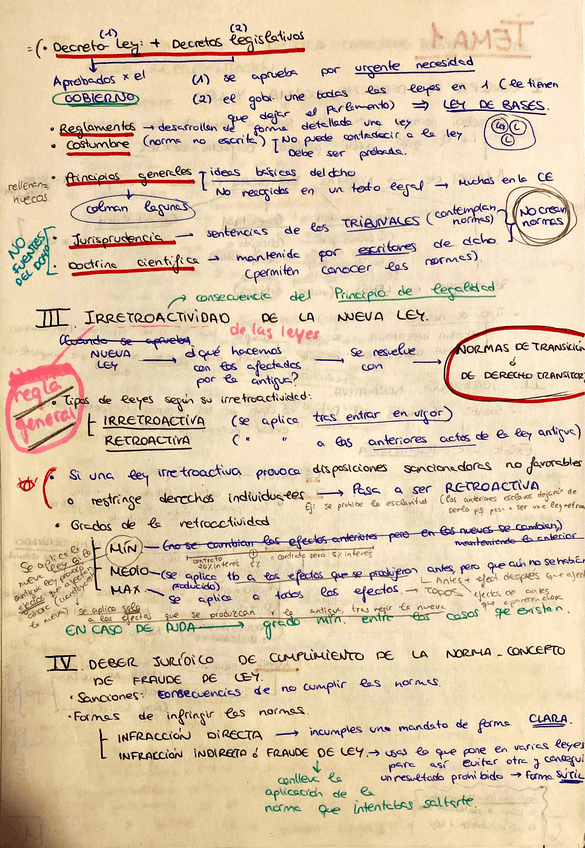 (1) (2)
=(· Decreto Ley: + Decretos legislativos
Aprobados x el GOBIERNO
(1) se aprueba por urgente necesidad
(2) el gobi. une todas las leyes en 1 (le tienen
que dejar el Parlamento) ⇒ LEY DE BASES.
· Reglamentos → desarrollan de forma detallada una ley
· Costumbre (norma no escrita) [ No puede contradecir a la ley
Debe ser probada.
rellenan huecos
· Principios generales [ ideas básicas del dcho
No recogidos en un texto legal → Muchos en la CE
colman lagunas
NO FUENTES DEL DCHO
· Jurisprudencia → sentencias de los TRIBUNALES (contemplan normas)
· Doctrina científica → mantenida por escritores de dcho
(permiten conocer las normas).
No crean normas
consecuencia del Principio de legalidad
III IRRETROACTIVIDAD DE LA NUEVA LEY.
de las leyes
Cuando se aprueba
NUEVA LEY → d qué hacemos con los afectados por la antigua? → se resuelve con → NORMAS DE TRANSICIÓN
ó
DE DERECHO TRANSITOR
regla general
· Tipos de leyes según su irretroactividad:
[ IRRETROACTIVA (se aplica tras entrar en vigor)
RETROACTIVA (" " a los anteriores actos de la ley antigua)
· Si una ley irretroactiva provoca disposiciones sancionadoras no favorables
o restringe derechos individuales → Pasa a ser RETROACTIVA
Ej: se prohíbe la esclavitud (los anteriores esclavos dejarán de
· Grados de la retroactividad
MÍN (no se cambian los efectos anteriores pero en los nuevos se cambian)
manteniendo la anterior
contrato
20% interés 5% = contrato pero 5% interés
MEDIO (se aplica tb a los efectos que se produjeron antes, pero que aún no se habían
producido)
MAX → se aplica a todos los efectos. → TODOS
se aplica solo
a los efectos que se produzcan x la antigua, tras regir la nueva
EN CASO DE DUDA → grado mín. entre los casos qe existan.
IV DEBER JURÍDICO DE CUMPLIMIENTO DE LA NORMA - CONCEPTO
DE FRAUDE DE LEY.
· Sanciones: consecuencias de no cumplir las normas.
· Formas de infringir las normas.
[ INFRACCIÓN DIRECTA → incumples una mandato de forma CLARA.
INFRACCIÓN INDIRECTA ó FRAUDE DE LEY. → usas lo que pone en varias leyes
para así evitar otra y consegui
un resultado prohibido → Forma SUTIL
conlleva la
aplicación de la
norma que intentabas saltarte.